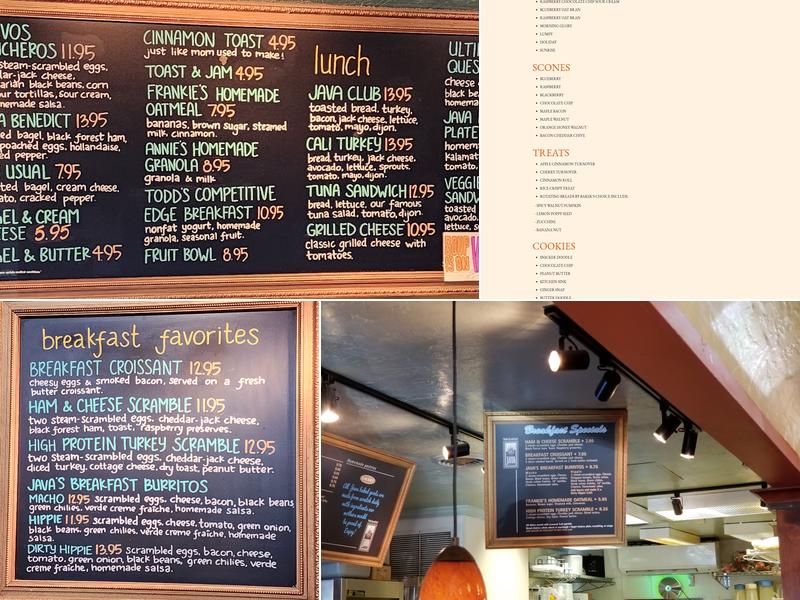 VOS
CHEROS 11.95
steam-scrambled eggs,
lar-jack cheese,
arian black beans, corn
ur tortillas, sour cream,
memade salsa.
A BENEDICT 13.95
ed bagel, black forest ham,
poached eggs, hollandaise,
ed pepper.
USUAL 7.95
ted bagel, cream cheese,
ato, cracked pepper.
EL & CREAM
ESE 5.95
EL & BUTTER 4.95
CINNAMON TOAST 4.95
just like mom used to make!
TOAST & JAM 4.95
FRANKIE'S HOMEMADE
OATMEAL 7.95
bananas, brown sugar, steamed
milk, cinnamon.
ANNIE'S HOMEMADE
GRANOLA 8.95
granola & milk
TODD'S COMPETITIVE
EDGE BREAKFAST 10.95
nonfat yogurt, homemade
granola, seasonal fruit.
FRUIT BOWL 8.95
lunch
JAVA CLUB 13.95
toasted bread, turkey,
bacon, jack cheese, lettuce,
tomato, mayo, dijon.
CALI TURKEY 13.95
bread, turkey, jack cheese,
avocado, lettuce, sprouts,
tomato, mayo, dijon.
TUNA SANDWICH 12.95
bread, lettuce, our famous
tuna salad, tomato, dijon.
GRILLED CHEESE 10.95
classic grilled cheese with
tomatoes.
ULTI
QUES
cheese
black be
homema
JAVA
PLATE
homem
kalamat
tomato,
VEGGIE
SANDW
toasted
avocado,
lettuce, s
RASPBERRY CHOCOLATE CHIP SOUR CREAM
• BLUEBERRY OAT BRAN
• RASPBERRY OAT BRAN
• MORNING GLORY
• LUMPY
• HOLIDAY
• SUNRISE
SCONES
• BLUEBERRY
• RASPBERRY
• BLACKBERRY
• CHOCOLATE CHIP
• MAPLE BACON
• MAPLE WALNUT
• ORANGE HONEY WALNUT
• BACON CHEDDAR CHIVE
TREATS
• APPLE CINNAMON TURNOVER
• CHERRY TURNOVER
• CINNAMON ROLL
• RICE CRISPY TREAT
• ROTATING BREADS BY BAKER'S CHOICE INCLUDE:
- SPICY WALNUT PUMPKIN
- LEMON POPPY SEED
- ZUCCHINI
- BANANA NUT
COOKIES
• SNICKER DOODLE
• CHOCOLATE CHIP
• PEANUT BUTTER
• KITCHEN SINK
• GINGER SNAP
• BUTTER DOODLE
breakfast favorites
BREAKFAST CROISSANT 12.95
cheesy eggs & smoked bacon, served on a fresh
butter croissant.
HAM & CHEESE SCRAMBLE 11.95
two steam-scrambled eggs, cheddar-jack cheese,
black forest ham, toast, raspberry preserves.
HIGH PROTEIN TURKEY SCRAMBLE 12.95
two steam-scrambled eggs, cheddar-jack cheese,
diced turkey, cottage cheese, dry toast, peanut butter.
JAVA'S BREAKFAST BURRITOS
MACHO 12.95 scrambled eggs, cheese, bacon, black beans
green chilies, verde creme fraîche, homemade salsa.
HIPPIE 11.95 scrambled eggs, cheese, tomato, green onion,
black beans, green chilies, verde creme fraîche, homemade
salsa.
DIRTY HIPPIE 13.95 scrambled eggs, bacon, cheese,
tomato, green onion, black beans, green chilies, verde
creme fraîche, homemade salsa.
Breakfast Specials
HAM & CHEESE SCRAMBLE • 7.95
BREAKFAST CROISSANT • 7.95
JAVA'S BREAKFAST BURRITOS • 8.75
FRANKIE'S HOMEMADE OATMEAL • 5.95
HIGH PROTEIN TURKEY SCRAMBLE • 8.25